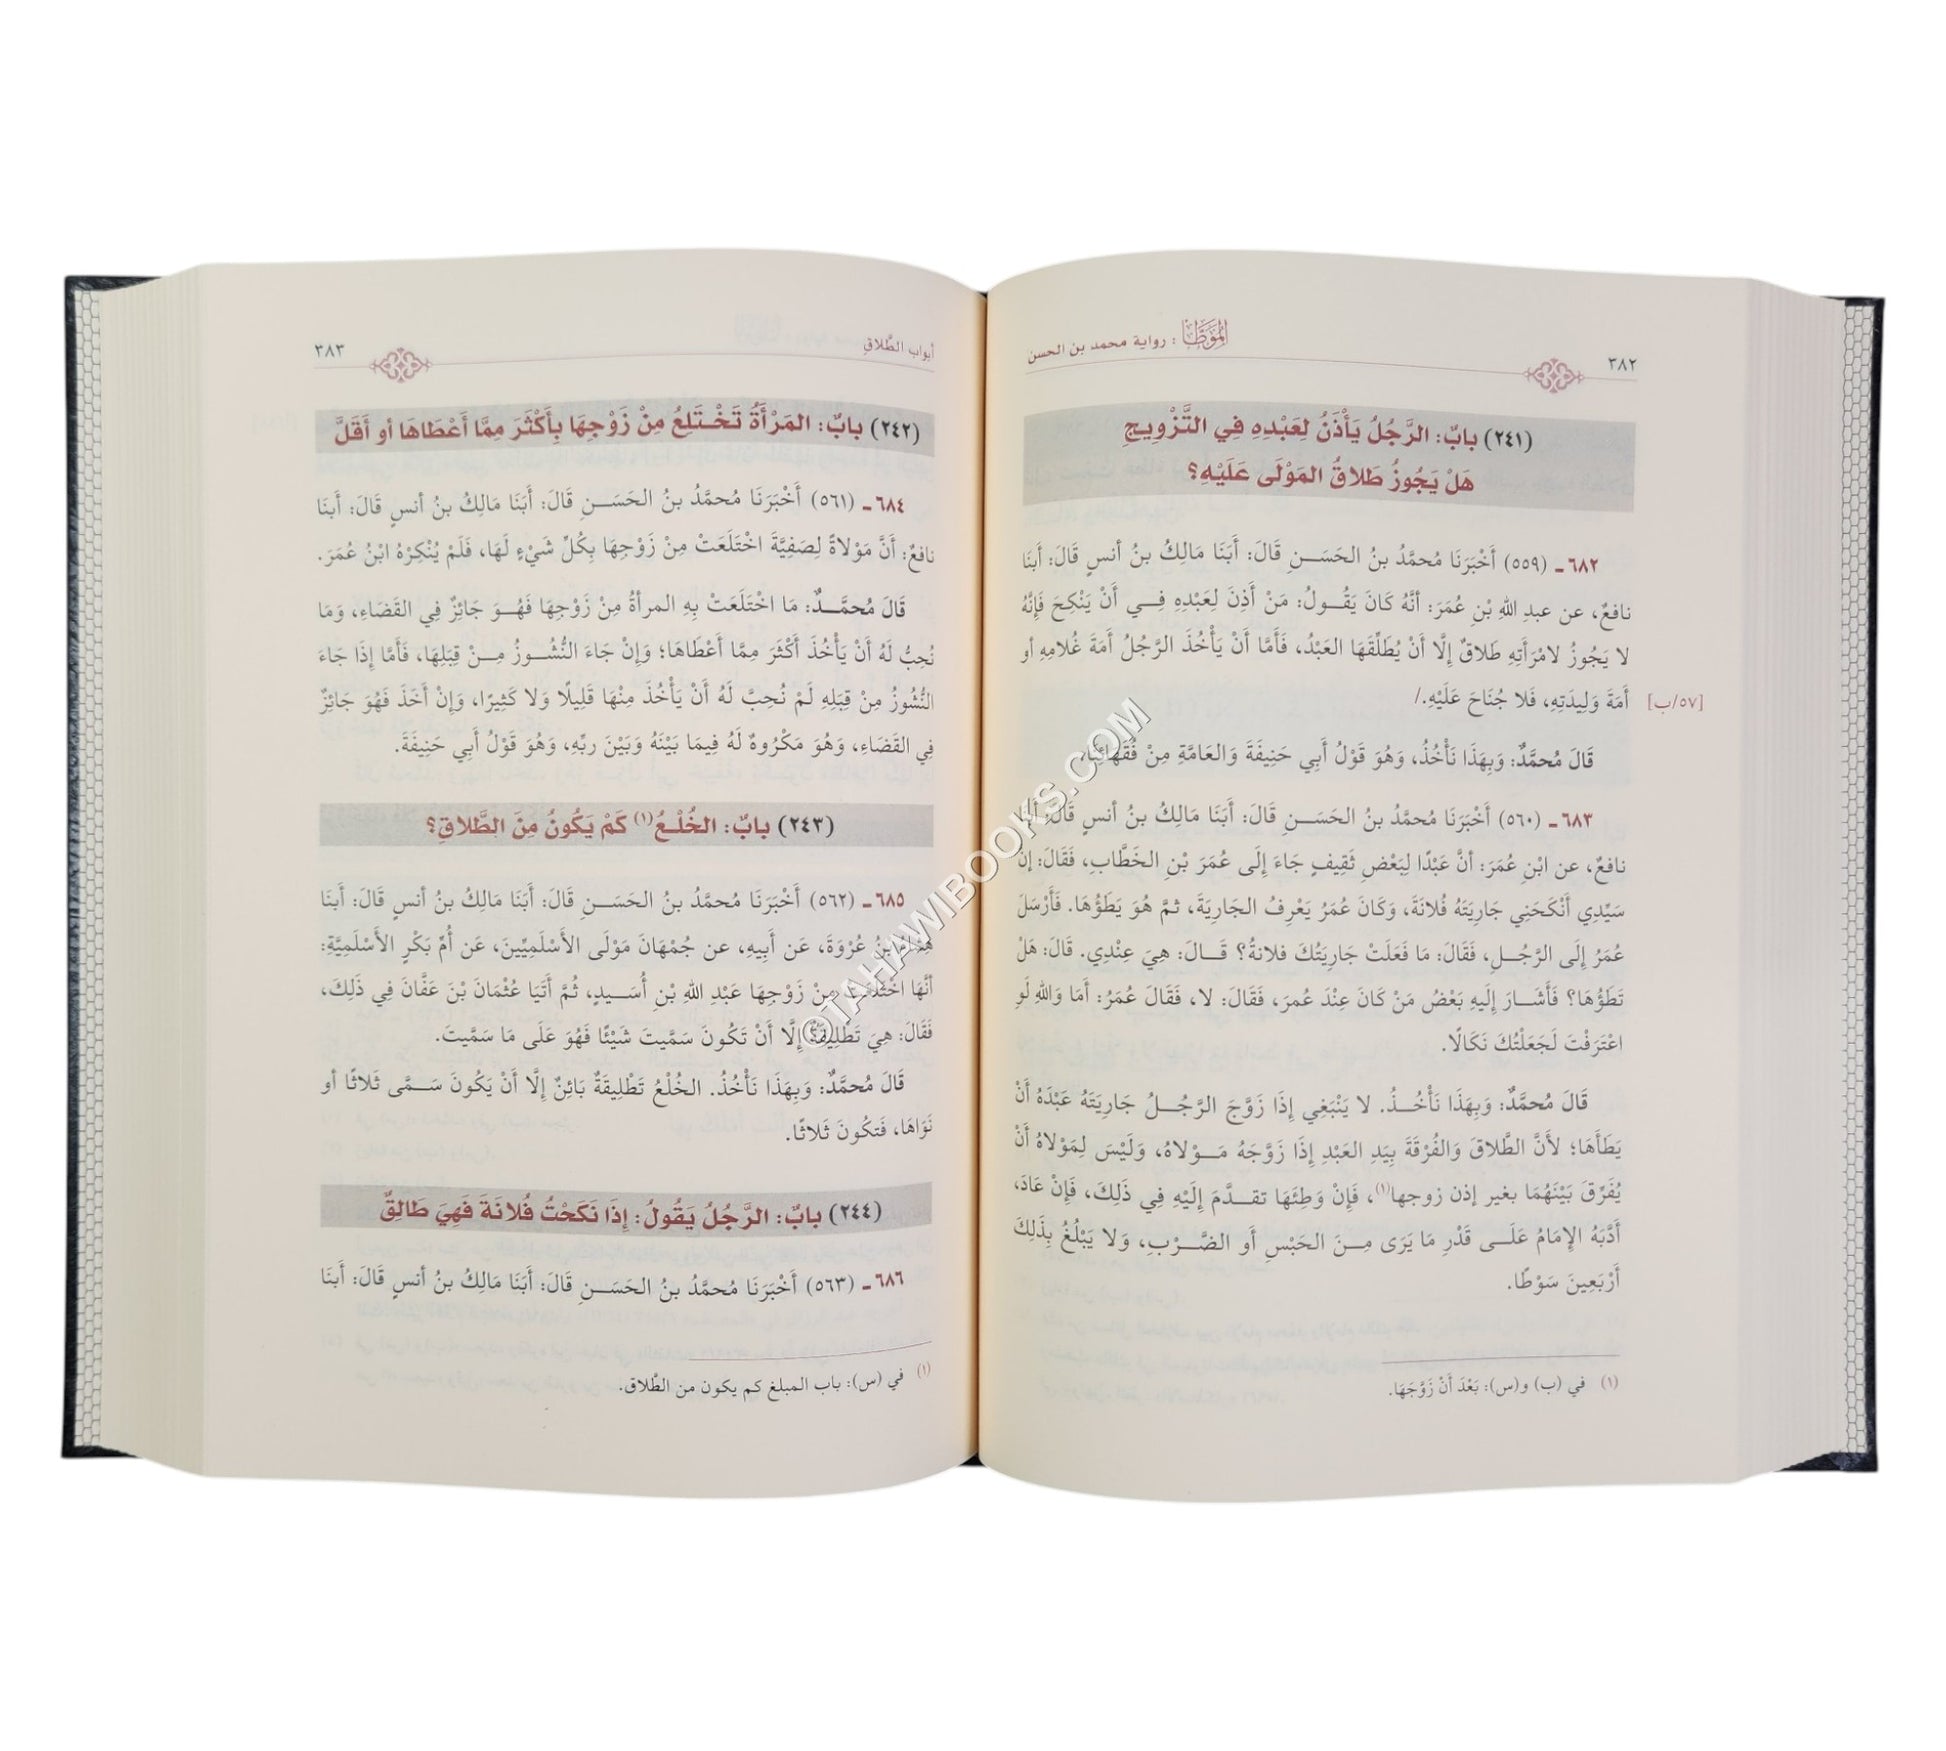 ٣٨٢
الموطأ : رواية محمد بن الحسن
(٢٤١) بابٌ: الرَّجُلُ يَأْذَنُ لِعَبْدِهِ فِي التَّزْوِيجِ
هَلْ يَجُوزُ طَلاقُ المَوْلَى عَلَيْهِ؟
٦٨٢ ـ (٥٥٩) أَخْبَرَنَا مُحمَّدُ بنُ الحَسَـــنِ قَالَ: أَبَنَا مَالِكُ بنُ أنسٍ قَالَ: أبَنَا
نافعٌ، عن عبدِ اللهِ بْنِ عُمَرَ: أنَّهُ كَانَ يَقُـــولُ: مَنْ أَذِنَ لِعَبْدِهِ فِـــي أَنْ يَنْكِحَ فَإِنَّهُ
لا يَجُوزُ لامْرَأَتِهِ طَلاقٌ إِلَّا أَنْ يُطَلِّقَهَا العَبْدُ، فَأَمَّا أَنْ يَأْخُذَ الرَّجُلُ أَمَةَ غُلامِهِ أو
أَمَةَ وَلِيدَتِهِ، فَلا جُنَاحَ عَلَيْهِ./
[٥٧/ب]
قَالَ مُحمَّدٌ: وَبِهَذَا نَأْخُذُ، وَهُوَ قَوْلُ أَبِي حَنِيفَةَ وَالعَامَّةِ مِنْ فُقَهَائِنَا.
٦٨٣ ـ (٥٦٠) أَخْبَرَنَا مُحمَّدُ بنُ الحَسَـــنِ قَالَ: أَبَنَا مَالِكُ بنُ أنسٍ قَالَ: أبَنَا
نافعٌ، عن ابْنِ عُمَرَ: أنَّ عَبْدًا لِبَعْضِ ثَقِيفٍ جَاءَ إِلَى عُمَرَ بْنِ الخَطَّابِ، فَقَالَ: إنَّ
سَيِّدِي أَنْكَحَنِي جَارِيَتَهُ فُلانَةَ، وَكَانَ عُمَرُ يَعْرِفُ الجَارِيَةَ، ثمَّ هُوَ يَطَؤُهَا. فَأَرْسَلَ
عُمَرُ إِلَى الرَّجُـــلِ، فَقَالَ: مَا فَعَلَتْ جَارِيَتُكَ فلانةُ؟ قَـــالَ: هِيَ عِنْدِي. قَالَ: هَلْ
تَطَؤُهَا؟ فَأَشَـــارَ إِلَيهِ بَعْضُ مَنْ كَانَ عِنْدَ عُمرَ، فَقَالَ: لا، فَقَالَ عُمَرُ: أَمَا وَاللهِ لَوِ
اعْتَرَفْتَ لَجَعَلْتُكَ نَكَالًا.
قَالَ مُحمَّدٌ: وَبِهَذَا نَأْخُـــذُ. لا يَنْبَغِي إِذَا زَوَّجَ الرَّجُـــلُ جَارِيَتَهُ عَبْدَهُ أَنْ
يَطَأَهَا؛ لأَنَّ الطَّلاقَ وَالفُرْقَةَ بِيَدِ العَبْدِ إِذَا زَوَّجَهُ مَـــوْلاهُ، وَلَيْسَ لِمَوْلاهُ أَنْ
يُفَرِّقَ بَيْنَهُمَا بغير إذن زوجها(١)، فَإِنْ وَطِئَهَا تقدَّمَ إِلَيْهِ فِي ذَلِكَ، فَإِنْ عَادَ،
أَدَّبَهُ الإِمَامُ عَلَـــى قَدْرِ مَا يَرَى مِـــنَ الحَبْسِ أَو الضَّـــرْبِ، وَلا يَبْلُغُ بِذَلِكَ
أَرْبَعِينَ سَوْطًا.
(١) في (ب) و(س): بَعْدَ أَنْ زَوَّجَهَا.
أبواب الطَّلاقِ
٣٨٣
(٢٤٢) بابٌ: المَرْأَةُ تَخْـتَلِعُ مِنْ زَوْجِهَا بِأَكْثَرَ مِمَّا أَعْطَاهَا أو أَقَلَّ
٦٨٤ ـ (٥٦١) أَخْبَرَنَا مُحمَّدُ بنُ الحَسَـــنِ قَالَ: أَبَنَا مَالِكُ بنُ أنسٍ قَالَ: أبَنَا
نافعٌ: أَنَّ مَوْلاةً لِصَفِيَّةَ اخْتَلَعَتْ مِنْ زَوْجِهَا بِكُلِّ شَيْءٍ لَهَا، فَلَمْ يُنْكِرْهُ ابْنُ عُمَرَ.
قَالَ مُحمَّـــدٌ: مَا اخْتَلَعَتْ بِهِ المرأةُ مِنْ زَوْجِهَا فَهُـــوَ جَائِزٌ فِي القَضَاءِ، وَمَا
نُحِبُّ لَهُ أَنْ يَأْخُذَ أَكْثَرَ مِمَّا أَعْطَاهَا؛ وَإِنْ جَاءَ النُّشُـــوزُ مِـــنْ قِبَلِهَا، فَأَمَّا إِذَا جَاءَ
النُّشُوزُ مِنْ قِبَلِهِ لَمْ نُحِبَّ لَهُ أَنْ يَأْخُذَ مِنْهَا قَلِيلًا وَلا كَثِيرًا، وَإِنْ أَخَذَ فَهُوَ جَائِزٌ
فِي القَضَاءِ، وَهُوَ مَكْرُوهٌ لَهُ فِيمَا بَيْنَهُ وَبَيْنَ ربِّهِ، وَهُوَ قَوْلُ أَبِي حَنِيفَةَ.
(٢٤٣) بابٌ: الخُلْـعُ(١) كَمْ يَكُونُ مِنَ الطَّلاقِ؟
٦٨٥ ـ (٥٦٢) أَخْبَرَنَا مُحمَّدُ بنُ الحَسَـــنِ قَالَ: أَبَنَا مَالِكُ بنُ أنسٍ قَالَ: أبَنَا
هِشَامُ بنُ عُرْوَةَ، عَن أَبِيهِ، عن جُمْهَانَ مَوْلَى الأَسْلَمِيِّينَ، عَن أُمِّ بَكْرٍ الأَسْلَمِيَّةِ:
أنَّهَا اخْتَلَعَتْ مِنْ زَوْجِهَا عَبْدِ اللهِ بْنِ أُسَـــيدٍ، ثُمَّ أَتَيَا عُثْمَانَ بْنَ عَفَّانَ فِي ذَلِكَ،
فَقَالَ: هِيَ تَطْلِيقَةٌ إِلَّا أَنْ تَكُونَ سَمَّيتَ شَيْئًا فَهُوَ عَلَى مَا سَمَّيتَ.
قَالَ مُحمَّدٌ: وَبِهَذَا نَأْخُذُ. الخُلْعُ تَطْلِيقَةٌ بَائِنٌ إِلَّا أَنْ يَكُونَ سَـــمَّى ثَلاثًا أو
نَوَاهَا، فَتكُونَ ثَلاثًا.
(٢٤٤) بابٌ: الرَّجُلُ يَقُولُ: إِذَا نَكَحْتُ فُلانَةَ فَهِيَ طَالِقٌ
٦٨٦ ـ (٥٦٣) أَخْبَرَنَا مُحمَّدُ بنُ الحَسَـــنِ قَالَ: أَبَنَا مَالِكُ بنُ أنسٍ قَالَ: أبَنَا
(١) في (س): باب المبلغ كم يكون من الطَّلاق.
©TAHAWIBOOKS.COM